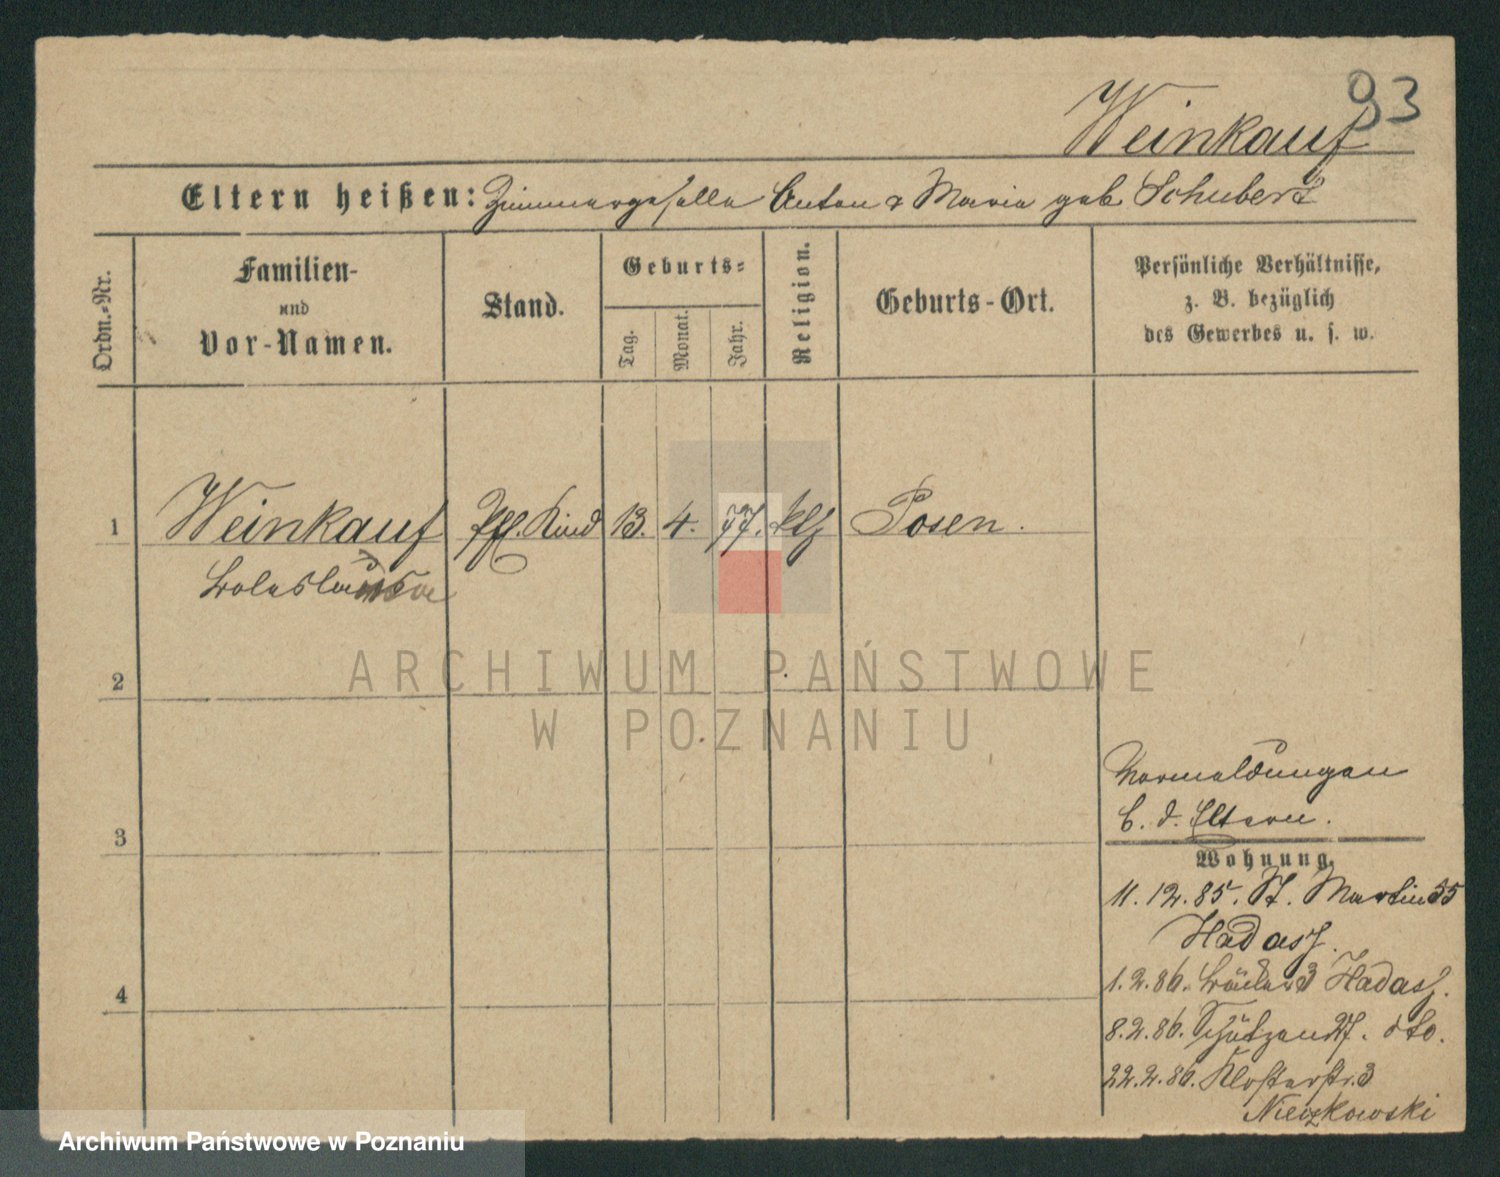 93
Weinkauf
Eltern heißen: Zimmergeselle Anton & Maria geb Schubert
Ordn.-Nr.
Familien-
und
Vor-Namen.
Stand.
Geburts-
Tag.
Monat.
Jahr.
Religion.
Geburts-Ort.
Persönliche Verhältnisse,
z. B. bezüglich
des Gewerbes u. s. w.
1 Weinkauf Pfl. Kind 13. 4. 77. klf Posen.
2
3
4
Vormeldungen
b. d. Eltern.
Wohnung.
11. 12. 85. St. Martin 55
Hadasz.
1. 2. 86. Bäcker 3 Hadasz.
8. 2. 86. Schützen 27. dto.
22. 2. 86. Klosterstr. 3
Nieizkowski
ARCHIWUM PAŃSTWOWE
W POZNANIU
Archiwum Państwowe w Poznaniu